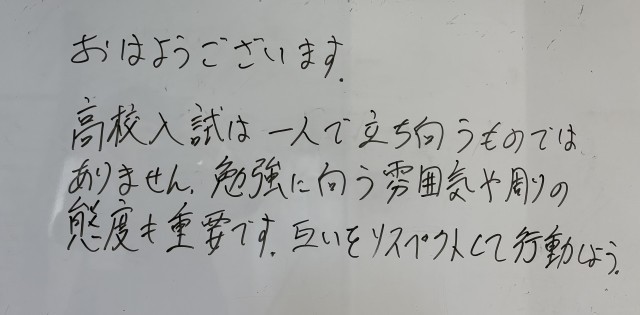 おはようございます.
高校入試は一人で立ち向うものでは
ありません. 勉強に向う雰囲気や周りの
態度も重要です. 互いをリスペクトして行動しよう.